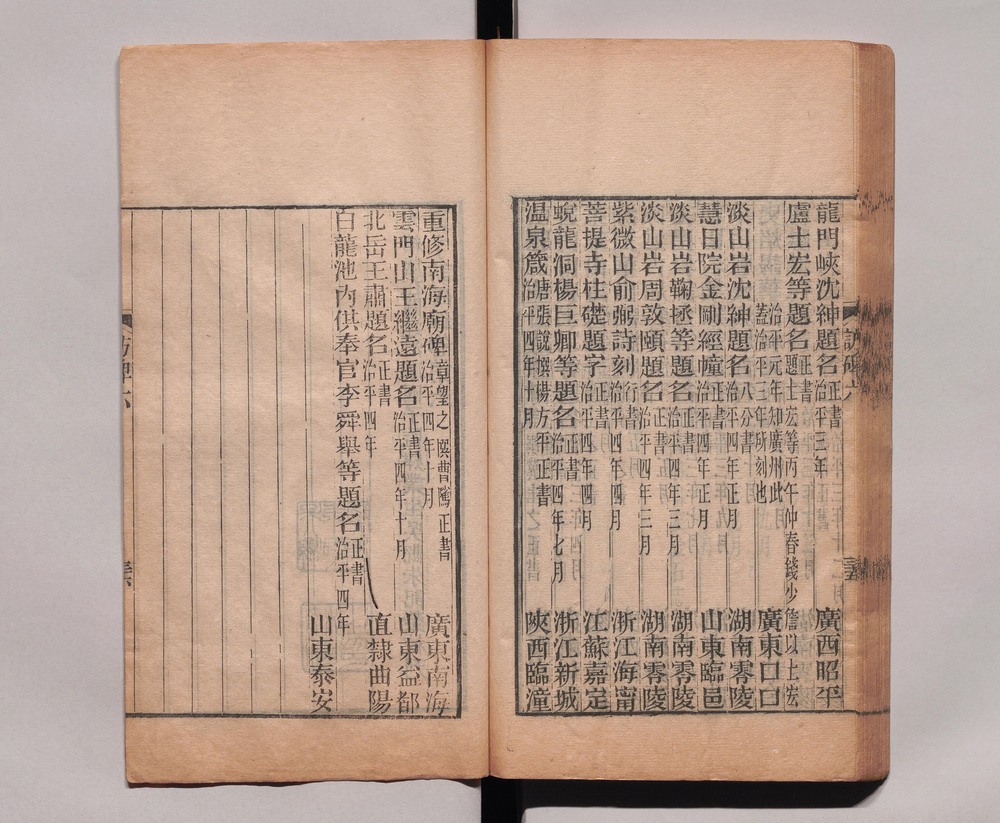 龍門峽沈紳題名 正書 治平三年 廣西昭平
盧士宏等題名 題士宏等丙午仲春錢少詹以士宏
治平元年知廣州此
蓋治平三年所刻也 廣東口口
淡山岩沈紳題名 八分書 治平四年正月 湖南零陵
慧日院金剛經幢 正書 治平四年正月 山東臨邑
淡山岩鞠拯等題名 正書 治平四年三月 湖南零陵
淡山岩周敦頤題名 正書 治平四年三月 湖南零陵
紫微山俞弼詩刻 行書 治平四年四月 浙江海甯
菩提寺柱礎題字 正書 治平四年四月 江蘇嘉定
蛻龍洞楊巨卿等題名 正書 治平四年七月 浙江新城
温泉箴 唐張說撰楊方平正書 治平四年十月 陝西臨潼
訪碑六
重修南海廟碑 章望之 曹 正書 治平四年十月 廣東南海
雲門山王繼遠題名 正書 治平四年十月 山東益都
北岳王肅題名 正書 治平四年 直隸曲陽
白龍池内供奉官李舜舉等題名 正書 治平四年 山東泰安